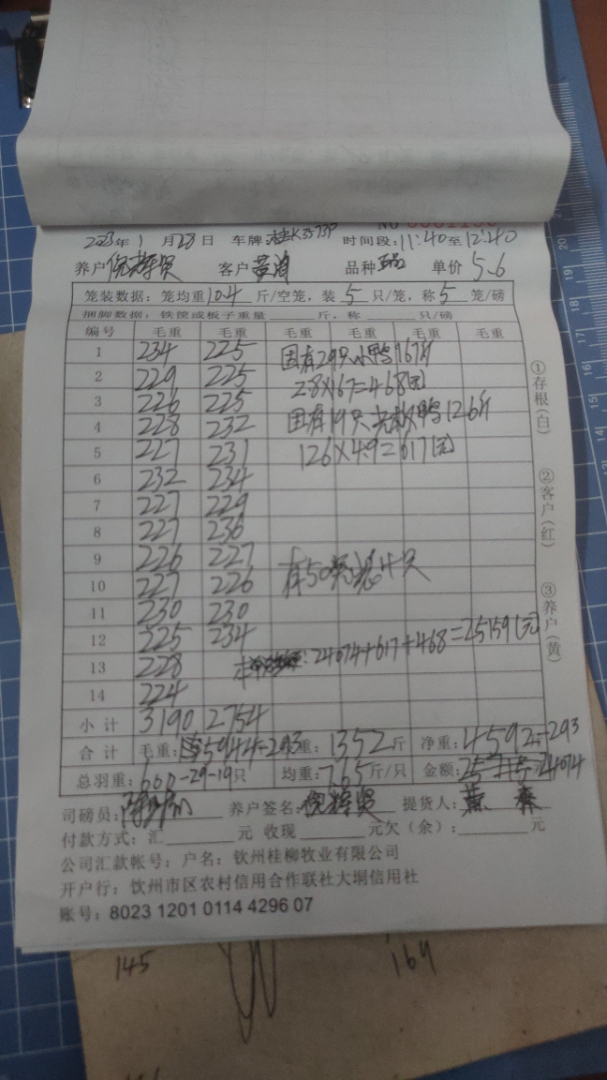 2023年 1 月 28 日 车牌: 时间段: 11:40 至 12:40
养户 客户 黄 品种 单价 5.6
笼装数据: 笼均重 10.4 斤/空笼, 装 5 只/笼, 称 5 笼/磅
捆脚数据: 铁筐或板子重量 斤, 称 只/磅
编号 毛重 毛重 毛重 毛重 毛重 毛重
1 234 225 因有29只小鸭167斤
2 229 225 2.8×167=468(元)
3 226 225
4 228 232 因有19只 鸭126斤
5 227 231 126×4.9=617(元)
6 232 234
7 227 229
8 227 236
9 226 227
10 227 226 有50 只
11 230 230
12 225 234
13 228 : 24074+617+468=25159(元)
14 224
小计 3190 2754
合计 毛重: 5944-293 重: 1352 斤 净重: 4592-293
总羽重: 600-29-19 只 均重: 7.65 斤/只 金额: 24074
司磅员: 养户签名: 提货人: 黄
付款方式: 汇 元 收现 元欠(余): 元
公司汇款帐号: 户名: 钦州桂柳牧业有限公司
开户行: 钦州市区农村信用合作联社大垌信用社
账号: 8023 1201 0114 4296 07
①存根(白)
②客户(红)
③养户(黄)
145 164